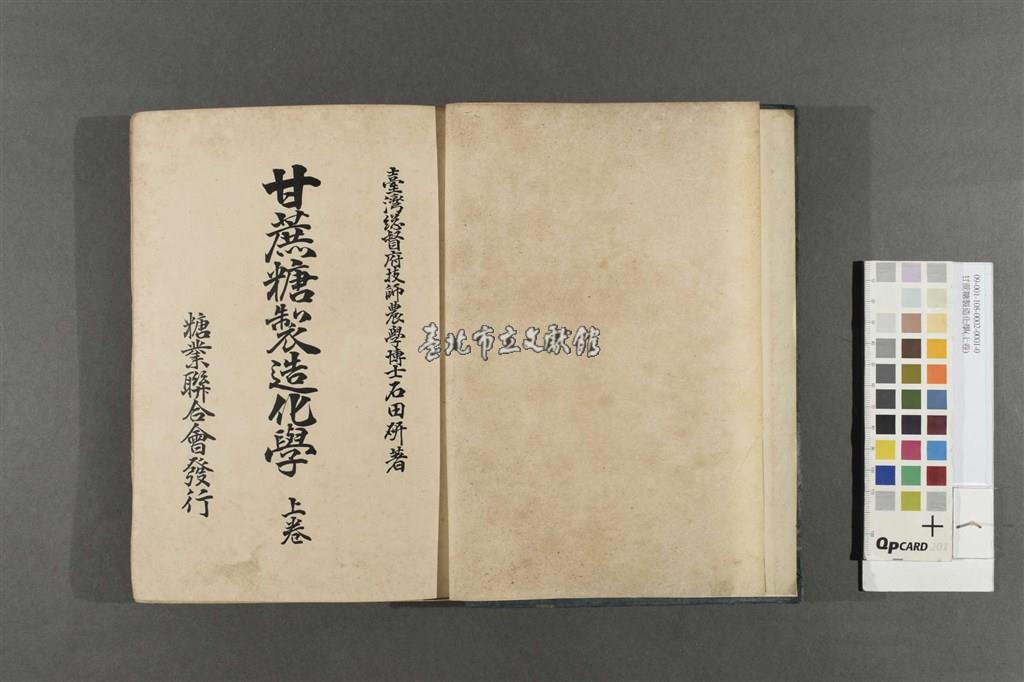 臺灣総督府技師農學博士石田研著
甘蔗糖製造化學 上卷
糖業聯合會發行
臺北市立文獻館
09-001-108-0002-0001-0
甘蔗糖製造化學(上卷)
QPCARD 201